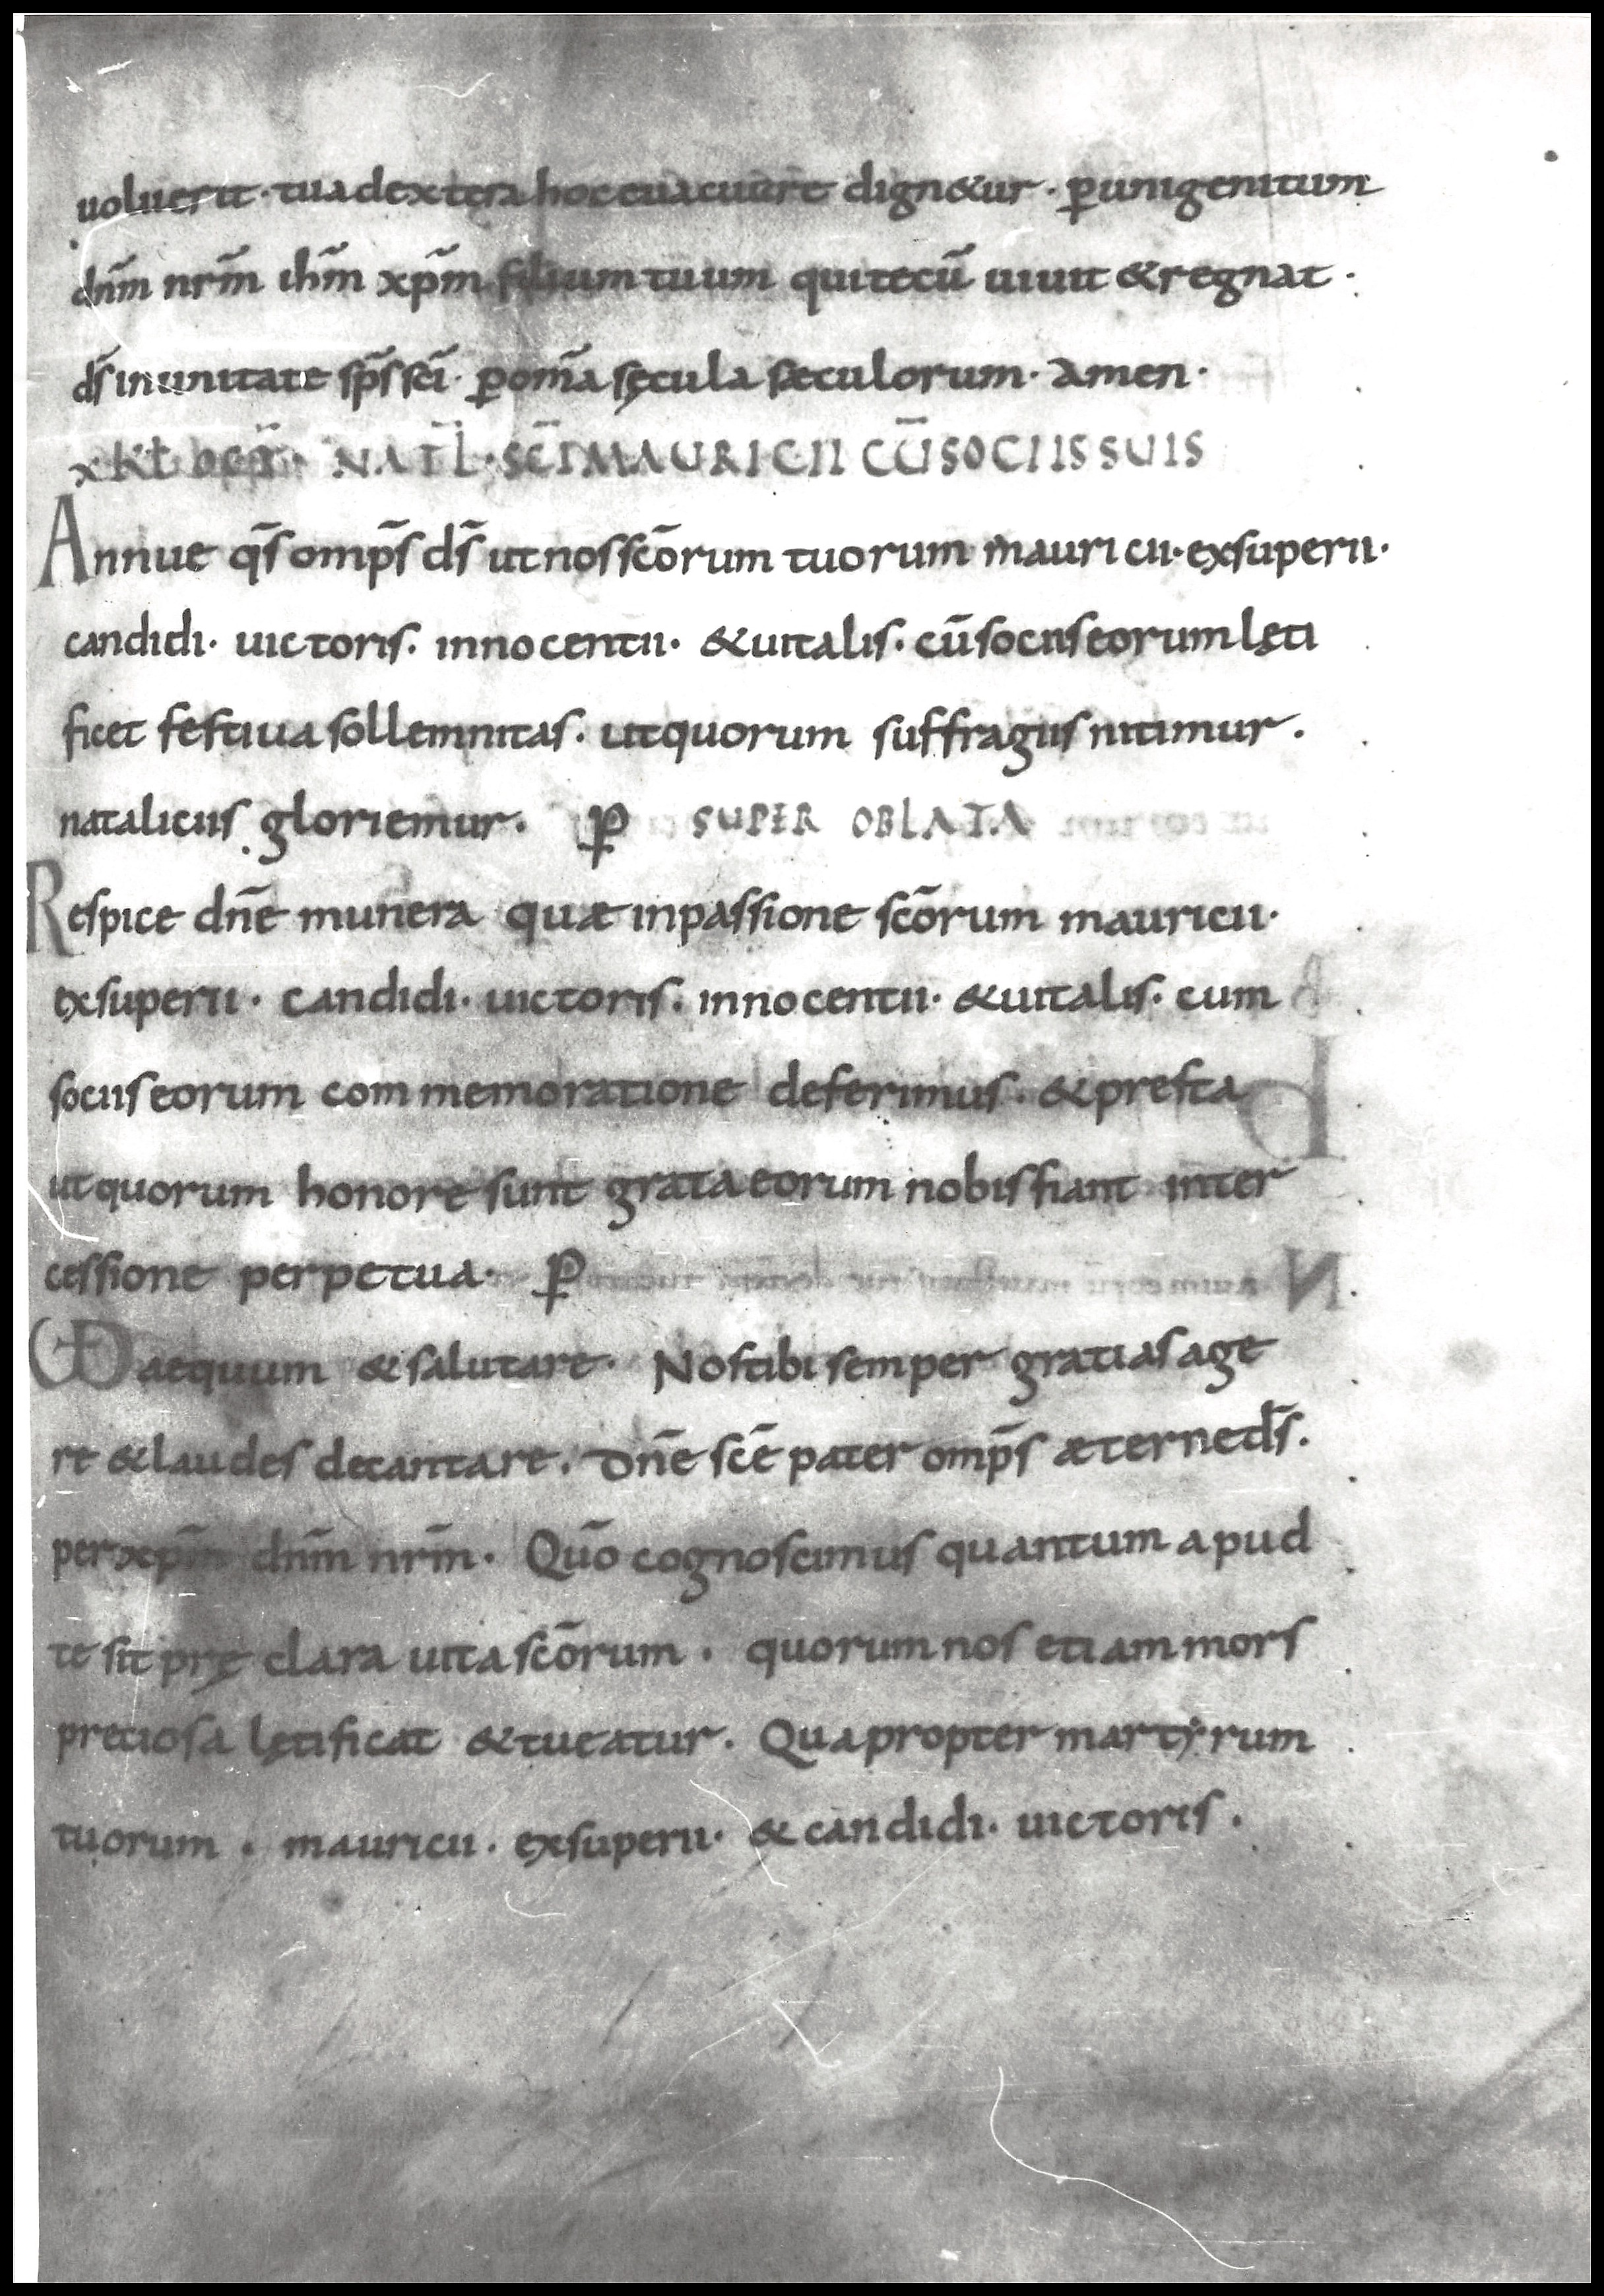 uoluerit · tua dextera hoc euacuare dign&ur · ꝑ unigenitum
dn̄m nr̄m ih̄m xp̄m filium tuum qui tecū uiuit & regnat ·
d̄s in unitate sp̄s sc̄i · ꝑ om̄a sęcula sæculorum · Amen ·
X KƖ OCT̄ · NATL̄ · SC̄I MAURICII CŪ SOCIIS SUIS
Annue q̄s omp̄s d̄s ut nos sc̄orum tuorum mauricii · exsuperii ·
candidi · uictoris · innocentii · & uitalis · cū sociis eorum lęti
ficet festiua sollemnitas · ut quorum suffragiis nitimur ·
nataliciis gloriemur · ꝑ SUPER OBLATA
Respice dn̄e munera quæ in passione sc̄orum mauricii ·
exsuperii · candidi · uictoris · innocentii · & uitalis · cum
sociis eorum commemoratione deferimus · & presta
ut quorum honore sunt grata eorum nobis fiant inter
cessione perpetua · ꝑ
VD aequum & salutare · Nos tibi semper gratias age
re & laudes decantare · Dn̄e sc̄e pater omp̄s æterne d̄s ·
per xp̄m dn̄m nr̄m · Quō cognoscimus quantum apud
te sit pręclara uita sc̄orum · quorum nos etiam mors
pretiosa lętificat & tueatur · Quapropter martẏrum
tuorum · mauricii · exsuperii · & candidi · uictoris ·